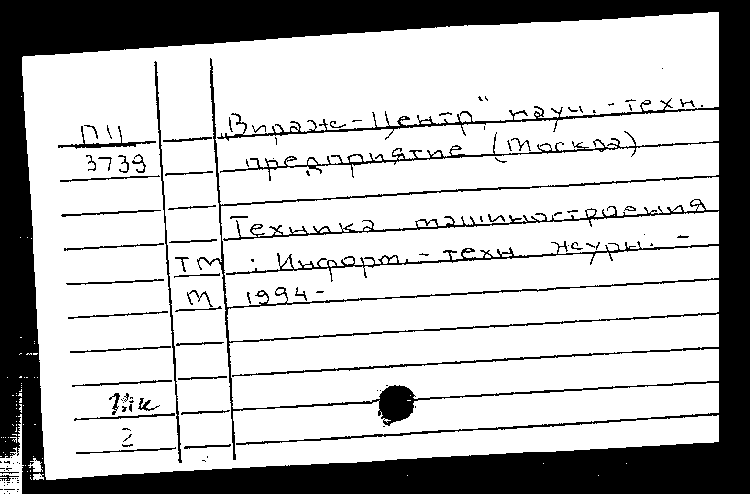 ПЦ „Вираж-Центр“, науч.-техн.
3739 предприятие (Москва)
Техника машиностроения
ТМ : Информ.-техн. журн. -
М 1994-
2